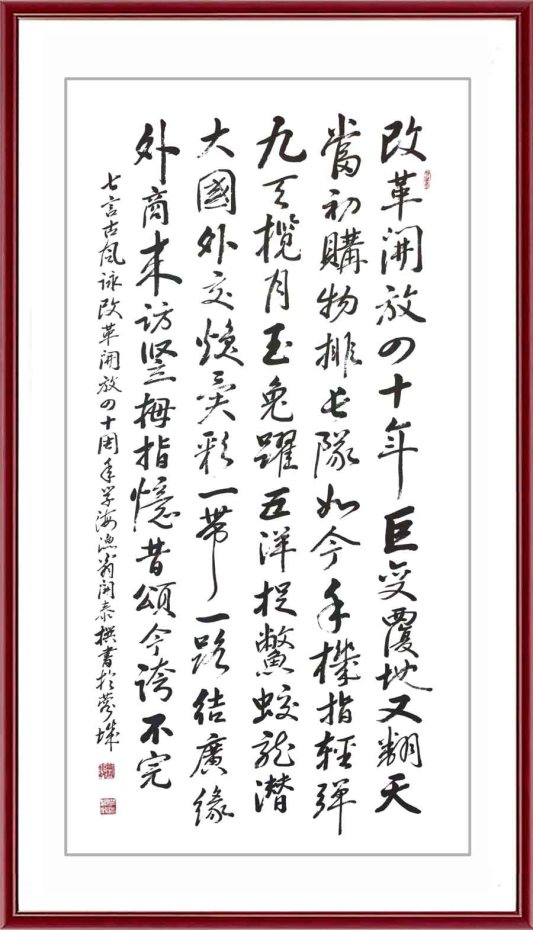 改革開放四十年巨变覆地又翻天
當初購物排长隊如今手機指輕彈
九天揽月玉兔躍五洋捉鱉蛟龙潜
大國外交焕異彩一带一路结廣缘
外商来访竖拇指憶昔頌今誇不完
七言古风咏改革開放四十周年学海渔翁開泰撰書於蓉城